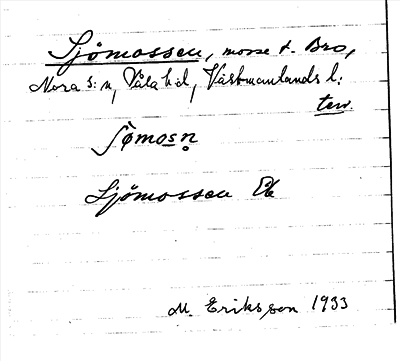 Sjömossen, mosse t. Bro,
Nora s:n, Våla hd, Västmanlands l:
terr.
ʃø̀mosn̥
Sjömossen Ek
M. Eriksson 1933